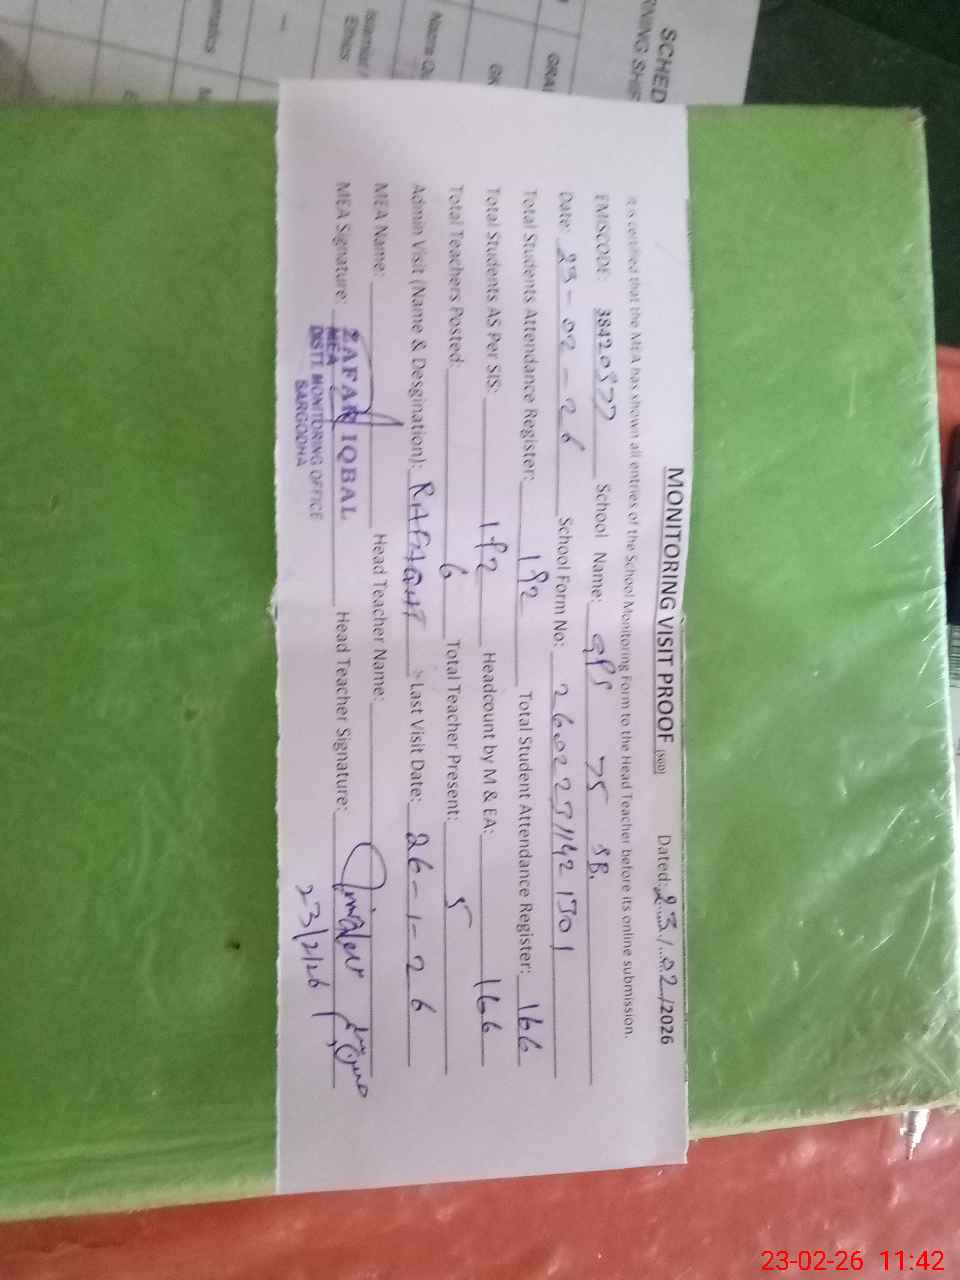 SCHED
GRAI
GK
MONITORING VISIT PROOF (SGD) Dated: 23/02/2026
It is certified that the MEA has shown all entries of the School Monitoring Form to the Head Teacher before its online submission.
EMISCODE: 38420377 School Name: GPS 75 SB.
Date: 23-02-26 School Form No:
Total Students Attendance Register: 192 Total Student Attendance Register: 166
Total Students AS Per SIS: 192 Headcount by M & EA: 166
Total Teachers Posted: 6 Total Teacher Present: 5
Admin Visit (Name & Desgination): Last Visit Date: 26-1-26
MEA Name: Head Teacher Name:
MEA Signature: Head Teacher Signature:
ZAFAR IQBAL
MEA
DISTT. MONITORING OFFICE
SARGODHA
23/2/26
23-02-26 11:42